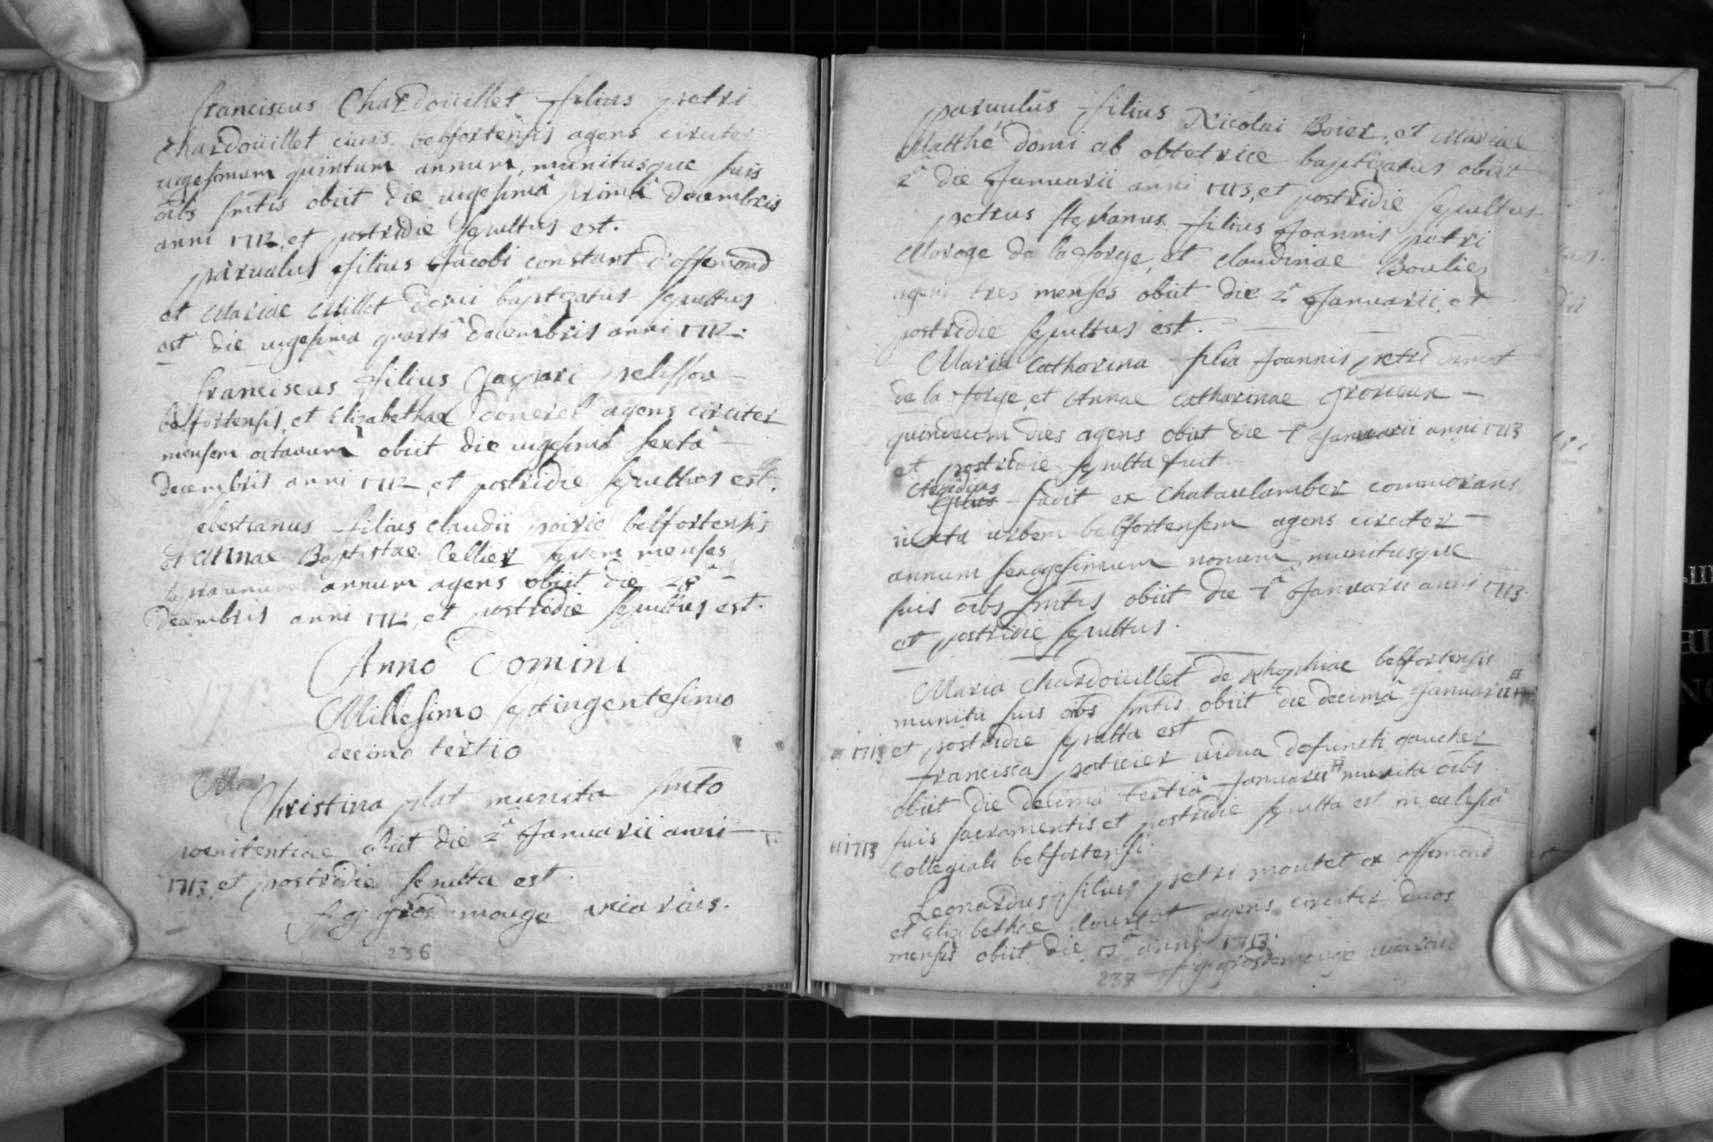 franciscus Chardoüillet filius petri
chardoüillet civis belfortensis agens circiter
vigesimum quintum annum, munitusque suis
oibs smtis obiit die vigesimâ primâ decembris
anni 1712, et postridie sepultus est.
parvulus filius Jacobi constant d'offemond
et Mariae Millet domi baptizatus sepultus
est die vigesima quartâ decembris anni 1712.
franciscus filius Gaspari pelissou
belfortensis, et Elizabethae agens circiter
mensem octavum obiit die vigesimâ sextâ
decembris anni 1712, et postridie sepultus est.
filius claudii poirie belfortensis
et Annae Baptistae Cellier septem menses
annum agens obiit die 28â
decembris anni 1712, et postridie sepultus est.
Anno Domini
Millesimo septingentesimo
decimo tertio
Christina plat munita smto
poenitentiae obiit die 2â Januarii anni
1713, et postridie sepulta est.
f g grosdemouge vicarius.
236
parvulus filius Nicolai Boier, et Mariae
Matthé domi ab obtetrice baptizatus obiit
2â die Januarii anni 1713, et postridie sepultus
petrus stephanus filius Joannis petri
de la forge, et claudinae Boulier
agens tres menses obiit die 2â Januarii, et
postridie sepultus est.
Maria Catharina filia Joannis petri
de la forge, et Annae catharinae
quindecim dies agens obiit die Januarii anni 1713
et postridie sepulta fuit.
Aegidius
ex commorans
iuxta urbem belfortensem agens circiter
annum sexagesimum nonum, munitusque
suis oibs smtis obiit die Januarii anni 1713.
et postridie sepultus.
Maria chardoüillet de belfortensis
munita suis oibs smtis obiit die decimâ Januarii #
# 1713 et postridie sepulta est
francisca vidua defuncti gaucher
obiit die decimâ tertiâ Januarii # munita oibs
suis sacramentis et postridie sepulta est in eclesiâ
# 1713 Collegiali belfortensi.
Leonardus filius petri moutet ex offemond
et elizabethae agens circiter duos
menses obiit die 13â anni 1713.
f g grosdemouge vicarius
237